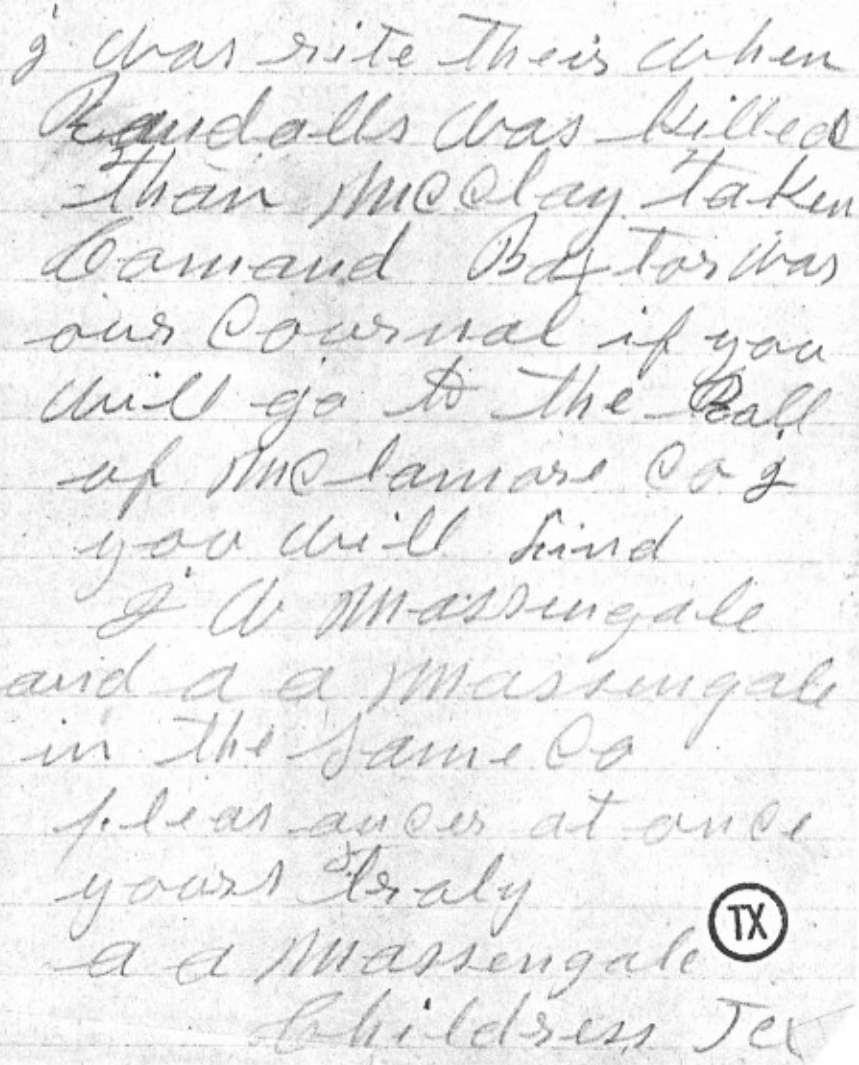 I was rite theis when
Randalls was killed
than McClay taken
Comand Baxtor was
our Cournal if you
will go to the Roall
of McClamore Co I
you will find
J W Massengale
and a a Massengale
in the same Co
pleas ancer at once
yours truly
TX
a a Massengale
Childress Tex